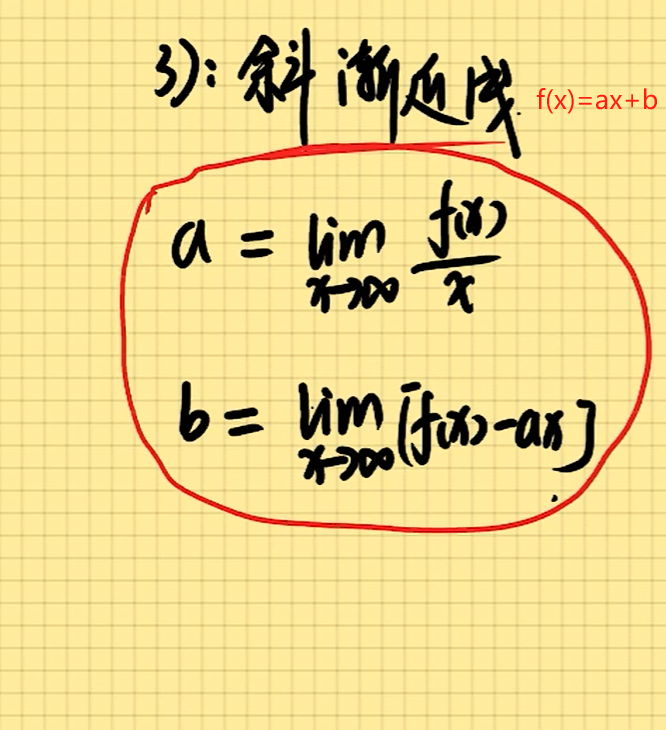 3): 斜渐近线 f(x)=ax+b
a = lim x→∞ f(x)/x
b = lim x→∞ [f(x)-ax]